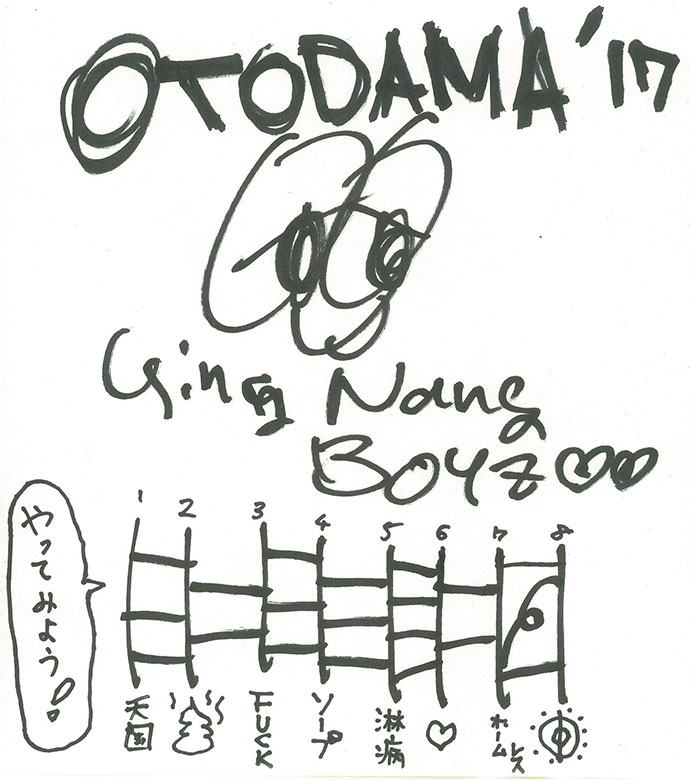 OTODAMA '17
Ging Nang
Boyz♡♡
やってみよう!
1 2 3 4 5 6 7 8
天国
FUCK
ソープ
淋病
♡
ホームレス